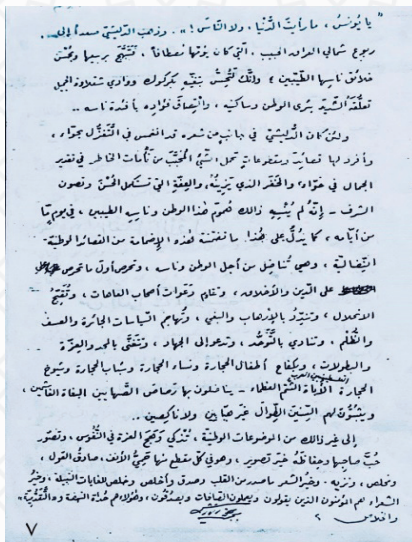 " يا يونسُ، ما رأيتَ الدُّنيا، ولا النَّاسَ! ". وذهب الدليشيّ مصعداً إلى
ربوع شمالي العراق الحبيب. التي كان يؤمّها مصطافاً، تَتَبهَّج بربيعها وحُسْن
خلائق ناسِها الطّيّبين، ولتلك بنفسه كركوك ووادي شقلاوة الجميل
تعلّقه الشّديد بثرى الوطن وساكنيه، والتصاق فؤاده بأفئدة ناسه ..
ولئن كان الدّليشي في جانبٍ من شعره قد انغمس في التّغزّل بحوّاء،
وأفرد لها قصائدَ ومقطوعاتٍ تحمل الشّيء المُحبَّب من تأمّلات الخاطر في تقدير
الجمال في حوّاء، والخَفَر الذي يزينُه، والعِفّةِ التي تستكمل الحُسْنَ وتصون
الشرف - إنّه لم يُنسِهِ ذلك هموم هذا الوطن وناسِه الطيبين، في يومٍ مّا
من أيّامه، كما يدلُّ على هذا ما تضمّنته هذه الإضمامة من القصائد الوطنيّة
النّضاليّة، وهي تُناضِل من أجل الوطن وناسه، وتحرص أوّل ما تحرص
على الدّين والأخلاق، وتقاوم دعوات أصحاب العاهات، وتُقبّحُ
الانحلال، وتندّد بالإرهاب والبغي، وتُهاجم السّياسات الجائرة والعسف
والظُّلْم، وتنادي بالتَّوحُّد، وتدعو إلى الجهاد، وتتغنّى بالمجد والعزّة
والبطولات، وبكفاح أطفال الحجارة ونساء الحجارة وشباب الحجارة وشيوخ
الحجارة الأُباة الشّمّ العظماء - يناضلون بها رصاص الصّهاينة البغاة الفاتكين،
ويثبتُون لهم السّنينَ الطِّوالَ غيرَ هيّابين ولا ناكصين ..
إلى غير ذلك من الموضوعات الوطنيّة، تُذكي وَهَجَ العزة في النّفوس، وتصوّر
حُبَّ صاحبِها وحِفاظَهُ خيرَ تصوير، وهو في كلّ مقطعٍ منها حَمِيُّ الأنف، صادقُ القول،
ومخلص، ونزيه. وخيرُ الشعر ما صدر من القلب وصدق وأخلص وخلص للغايات النّبيلة، وخيرُ
الشعراء هم المؤمنون الذين يقولون ويعملون الصّالحات ويصدُقون، وهؤلاء هم هُداة النهضة
٧